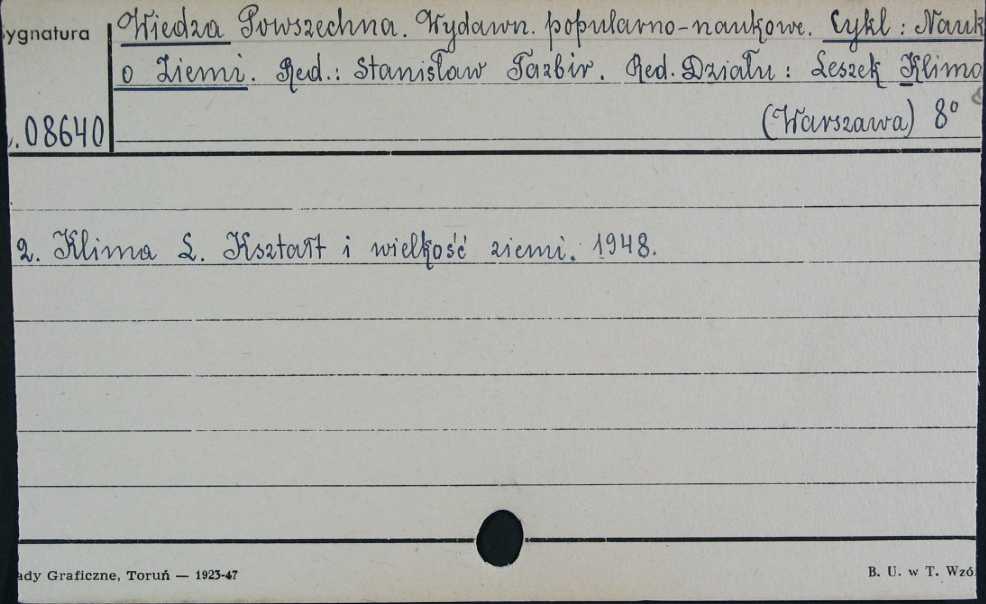 ygnatura
Wiedza Powszechna. Wydawn. popularno-naukowe. Cykl: Nauk
o Ziemi. Red.: Stanisław Tazbir. Red. Działu: Leszek Klima
.08640
(Warszawa) 8°
2. Klima L. Kształt i wielkość ziemi. 1948.
ady Graficzne, Toruń — 1923-47
B. U. w T. Wzó